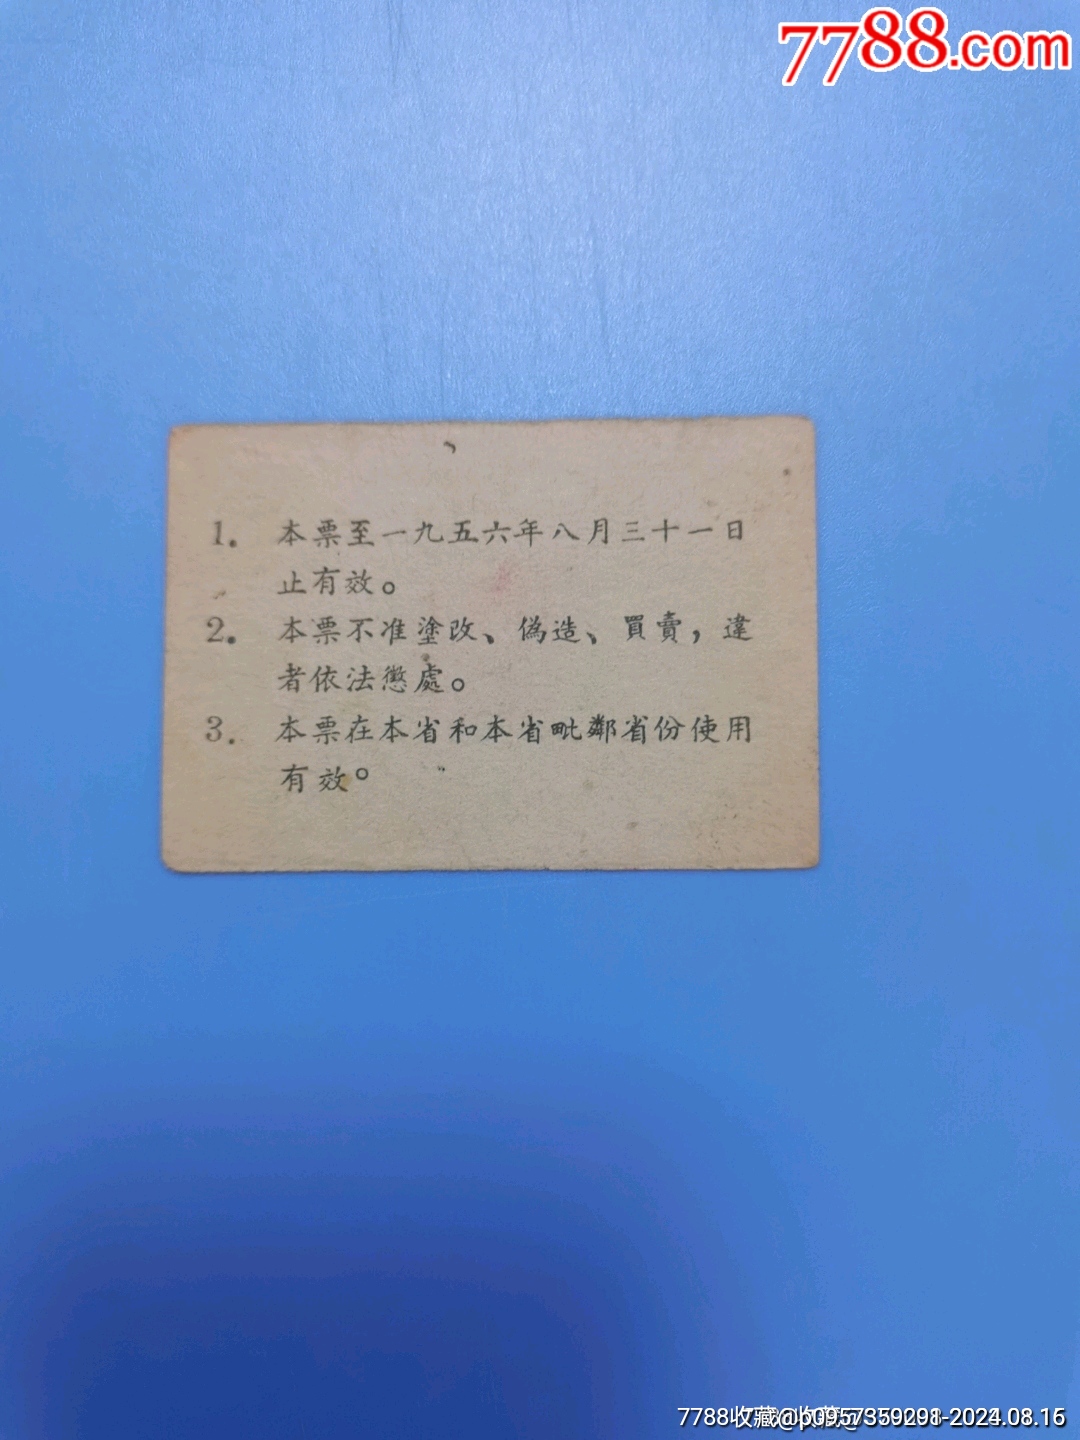 7788.com
1. 本票至一九五六年八月三十一日
止有效。
2. 本票不准塗改、偽造、買賣,違
者依法懲處。
3. 本票在本省和本省毗鄰省份使用
有效。